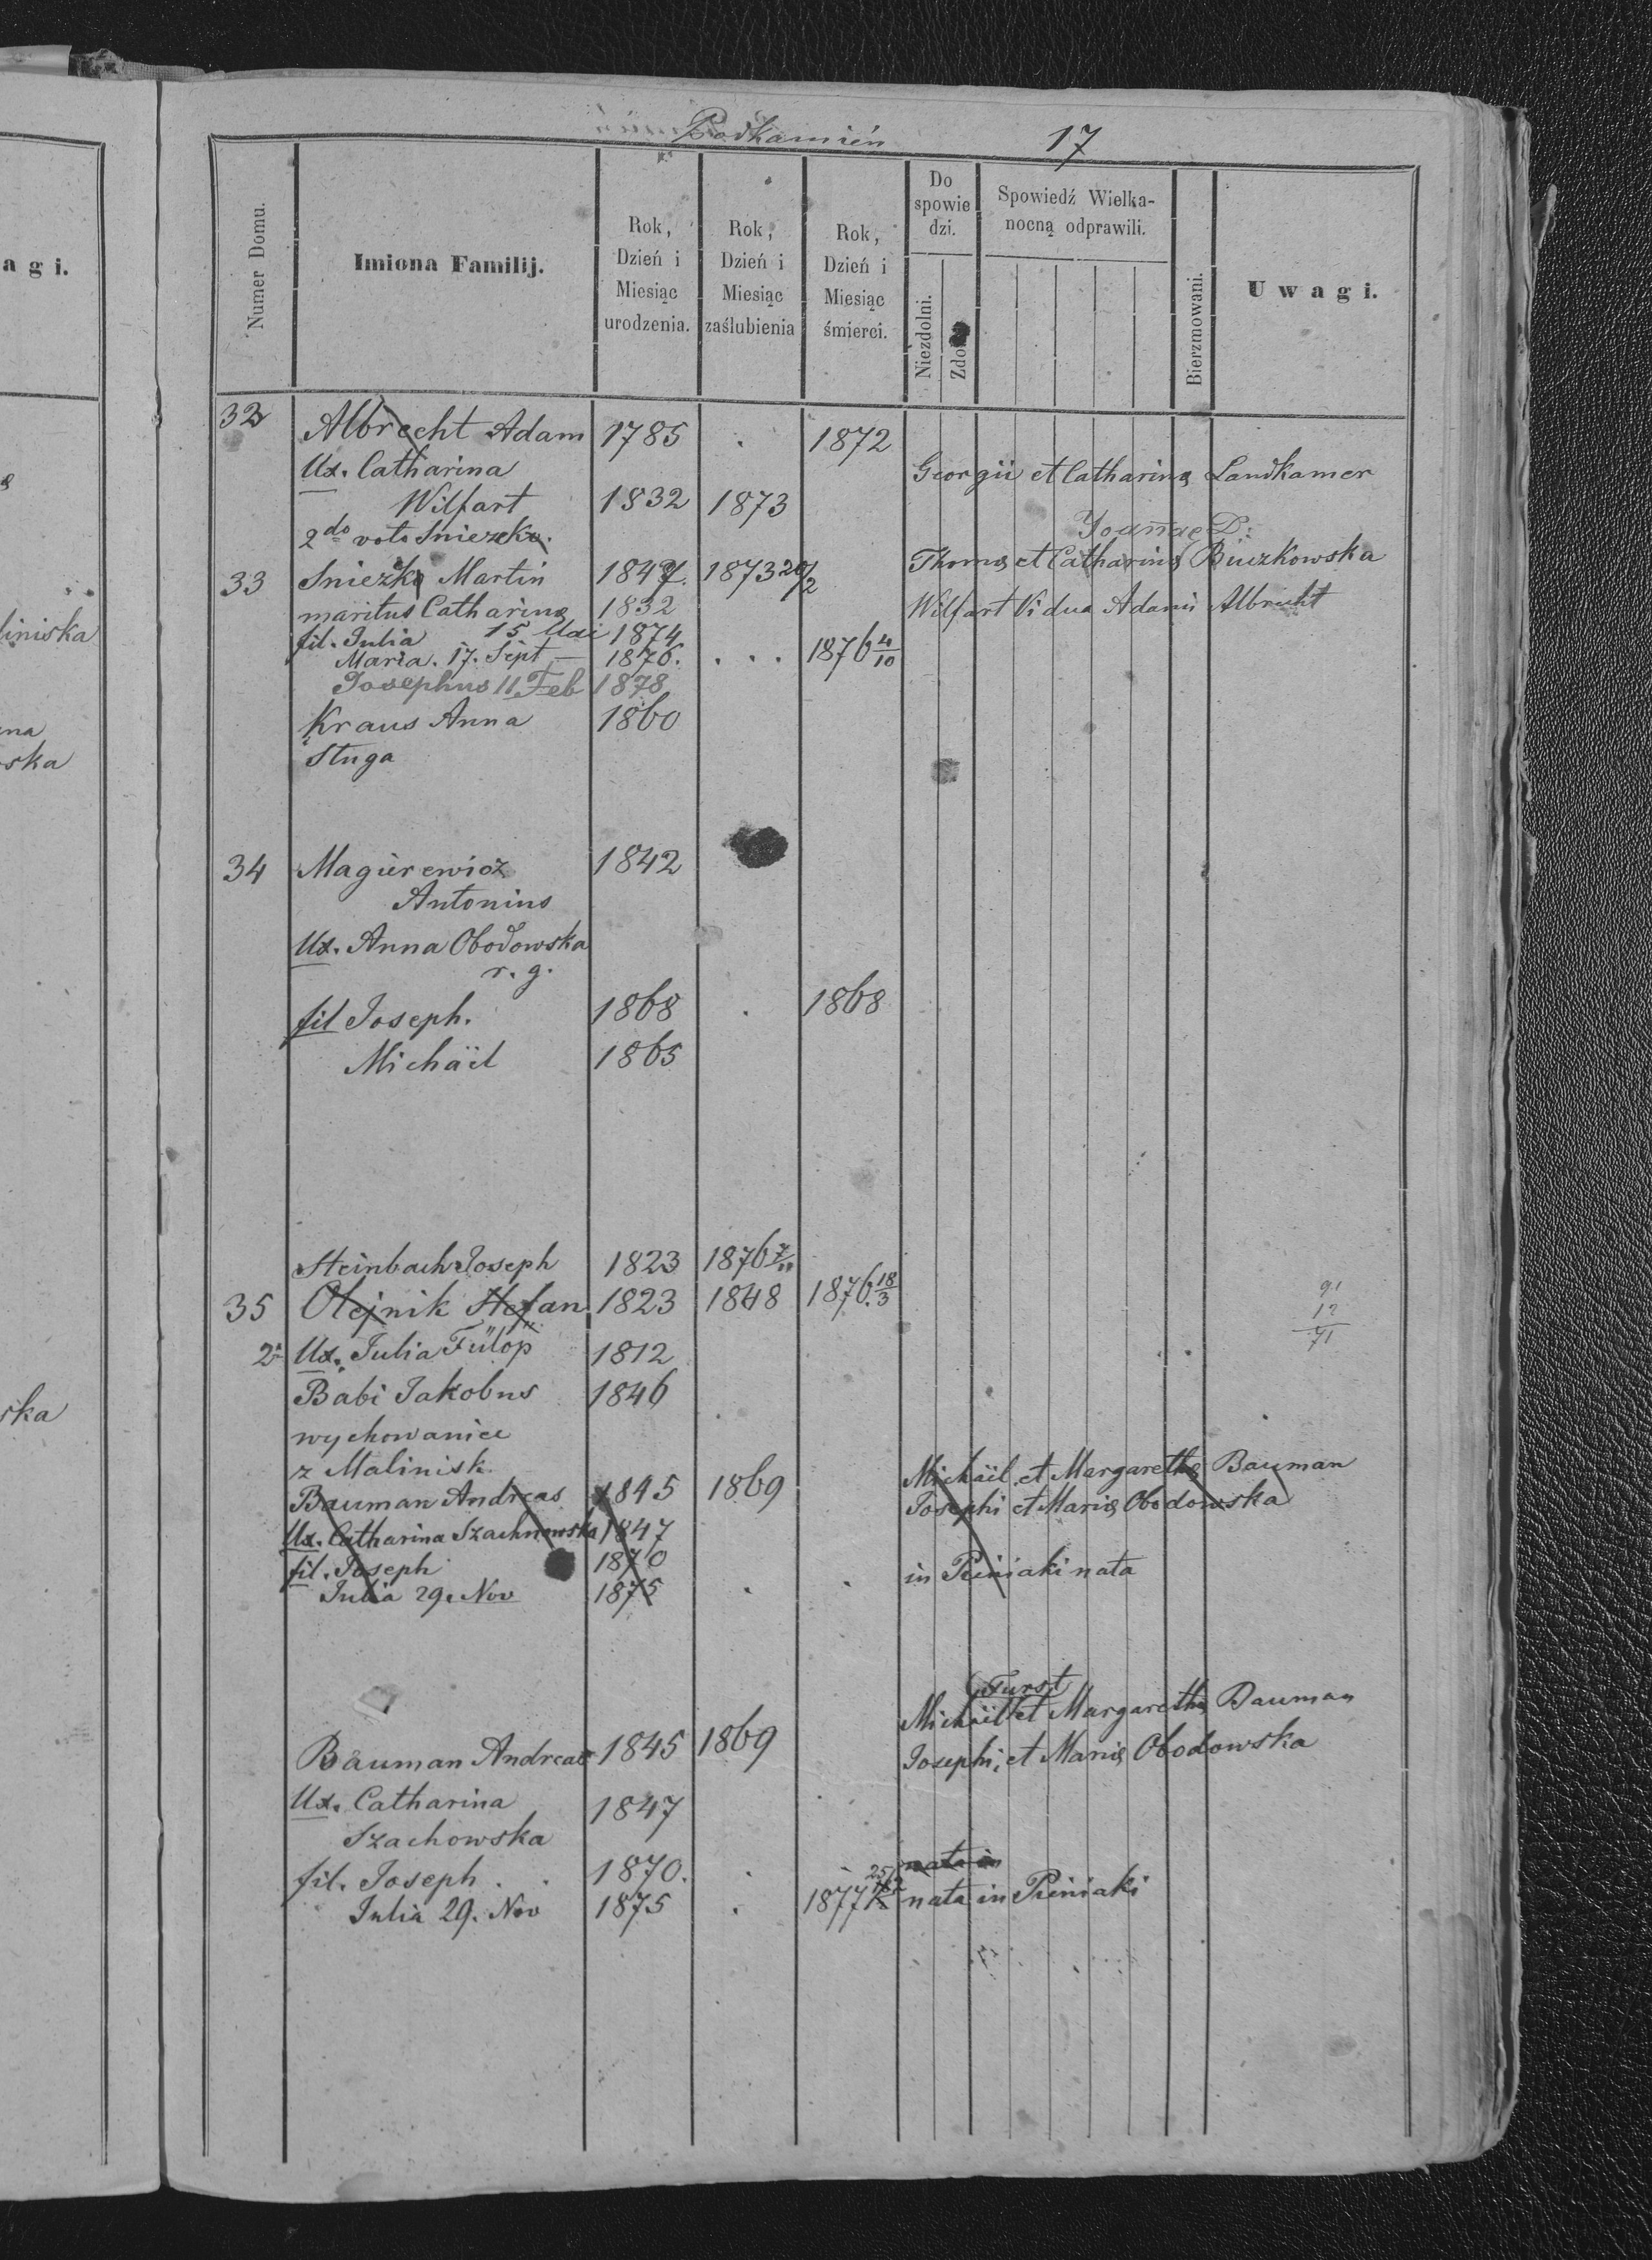 agi.
liniska
ska
ska
Podkamień 17
Numer Domu.
Imiona Familij.
Rok, Dzień i Miesiąc urodzenia.
Rok, Dzień i Miesiąc zaślubienia
Rok, Dzień i Miesiąc śmierci.
Do spowie dzi.
Niezdolni.
Spowiedź Wielka-
nocną odprawili.
Bierzmowani.
Uwagi.
32 Albrecht Adam 1785 . 1872
Ux. Catharina Georgii et Catharina Landkamer
Wilfart 1832 1873
2do voto Sniezko.
33 Sniezko Martin 1847. 1873 20/2 Thoma et Catharina Buczkowska
maritus Catharina 1832 Wilfart Vidua Adami Albrecht
fil. Julia 15 Mai 1874
Maria. 17. Sept — 1876. . . . 1876 4/10
Josephus 11 Feb 1878
Kraus Anna 1860
Sługa
34 Magurewicz 1842
Antonius
Ux. Anna Obodowska
r. g.
fil Joseph. 1868 . 1868
Michäel 1865
Steinbach Joseph 1823 1876
35 Olejnik Stefan 1823 1848 1876. 18/3
Ux. Julia Fülöp 1812
Babi Jakobus 1846
wychowanice
z Malinisk.
Bauman Andreas 1845 1869 Michäel et Margaretha Bauman
Josephi et Maria Obodowska
Ux. Catharina Szachnowska 1847
fil. Joseph 1870 in Pieniaki nata
Julia 29. Nov 1875 . .
Furst
Michäel et Margaretha Bauman
Bauman Andreas 1845 1869 Josephi et Maria Obodowska
Ux. Catharina 1847
Szachowska
nata in
fil. Joseph . . 1870. .
Julia 29. Nov 1875 . 1877 nata in Pieniaki